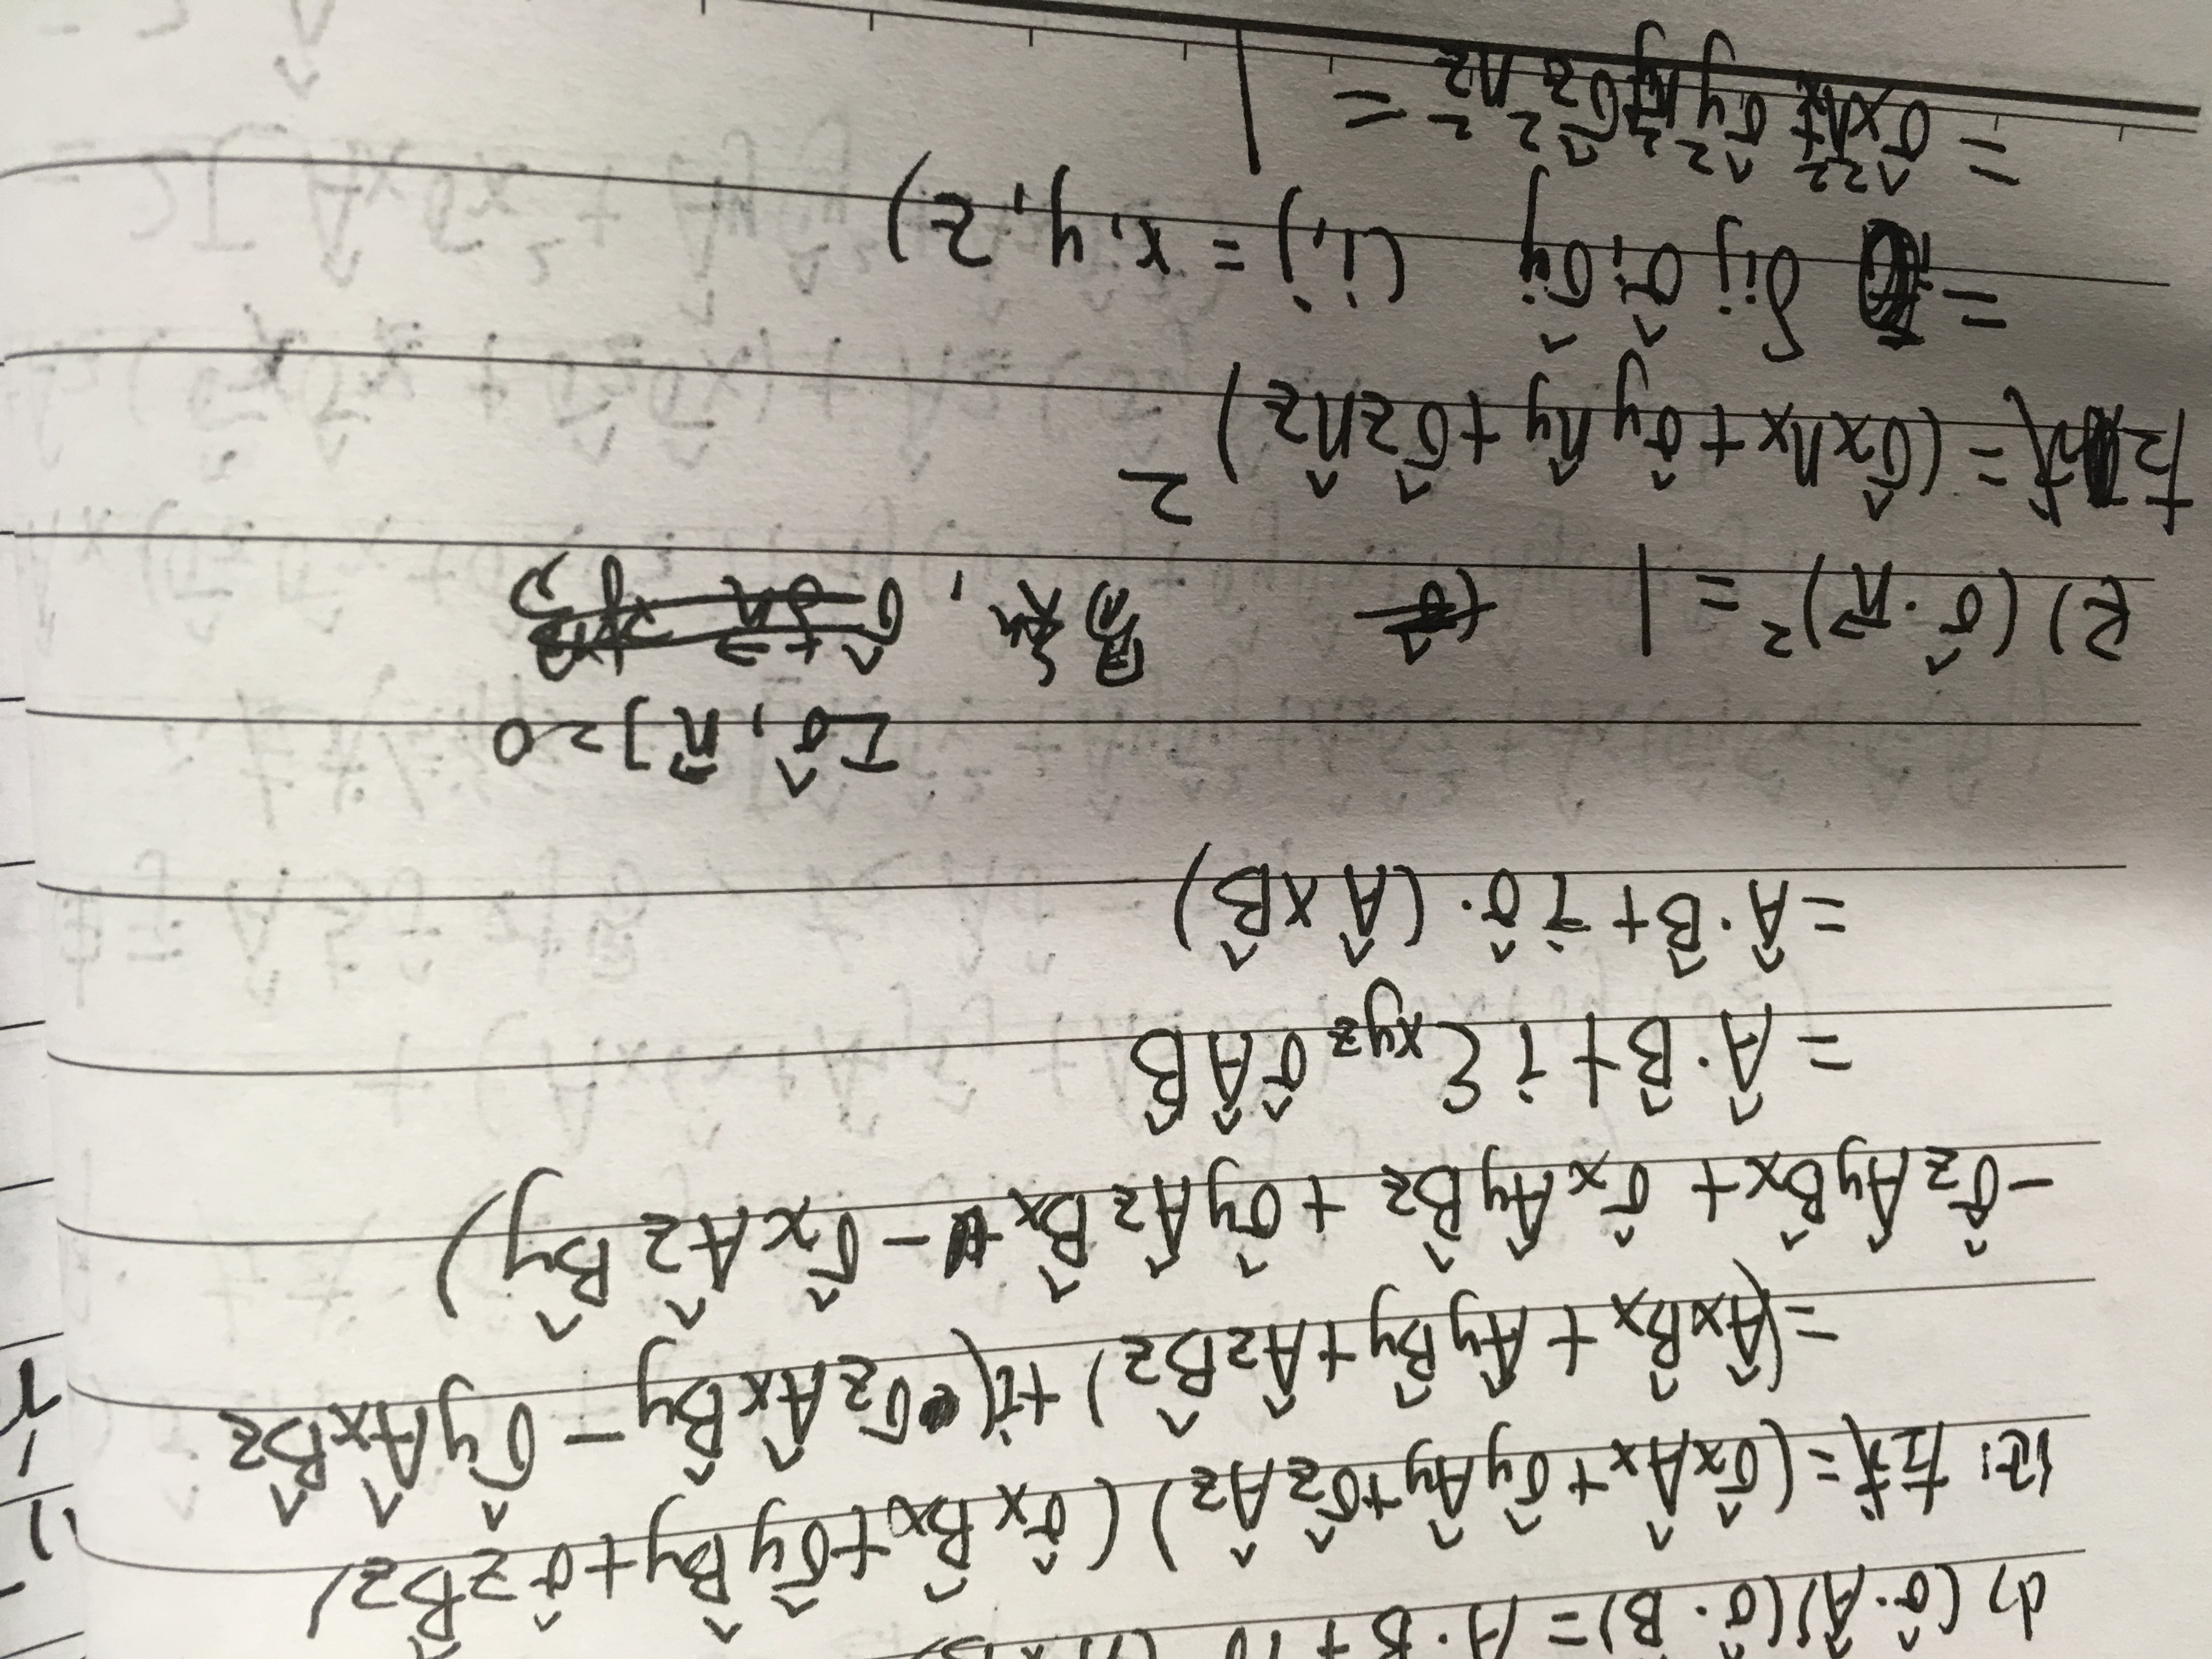 d) (σ̂·Â)(σ̂·B̂) = A·B + iσ (A×B)
证: 左式 = (σ̂xÂx + σ̂yÂy + σ̂zÂz) (σ̂xB̂x + σ̂yB̂y + σ̂zB̂z)
= (ÂxB̂x + ÂyB̂y + ÂzB̂z) + i( σzÂxB̂y − σ̂yÂxB̂z
− σ̂zÂyB̂x + σ̂xÂyB̂z + σ̂yÂzB̂x − σ̂xÂzB̂y)
= Â·B̂ + i εxyz σ̂ÂB̂
= Â·B̂ + i σ̂·(Â×B̂)
[σ̂, n⃗] = 0
e) (σ̂·n⃗)² = 1 易知,
左式 = (σ̂xnx + σ̂yn̂y + σ̂zn̂z)²
= δij σ̂iσ̂j (i,j = x, y, z)
= σ̂x²nx² + σ̂y²ny² + σ̂z²nz² = 1